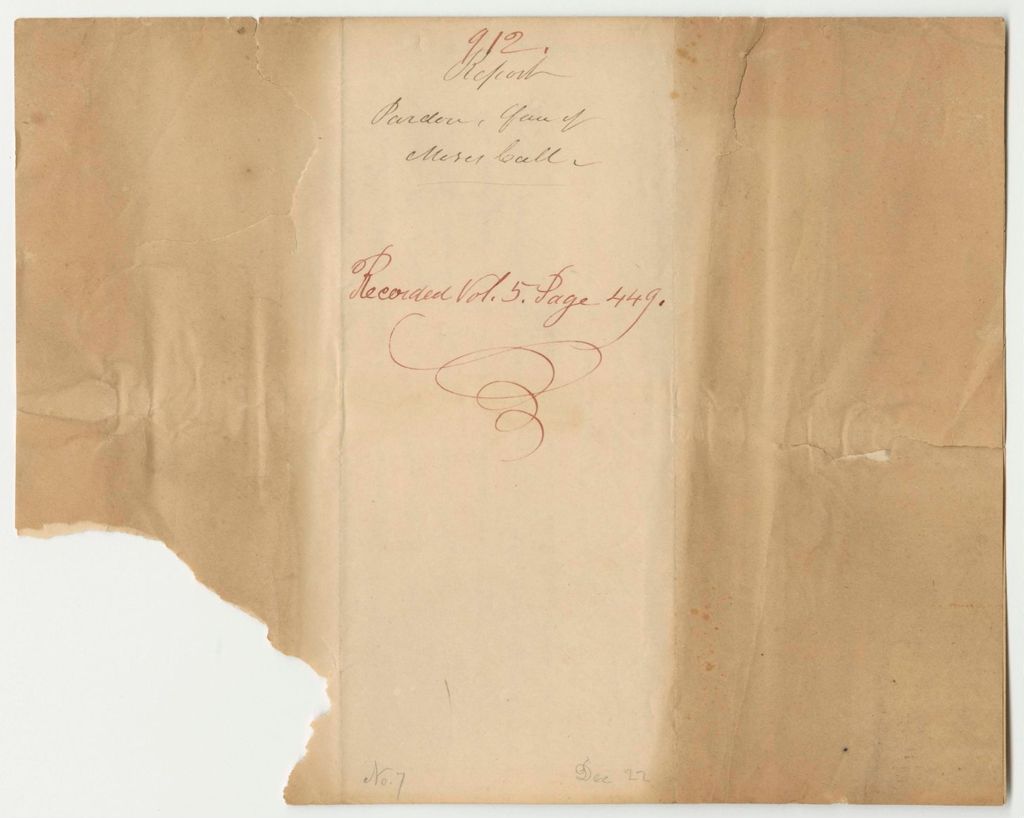 912.
Report
Pardon, Case of
Moses Call.
Recorded Vol. 5. Page 449.
No. 7
Dec 22